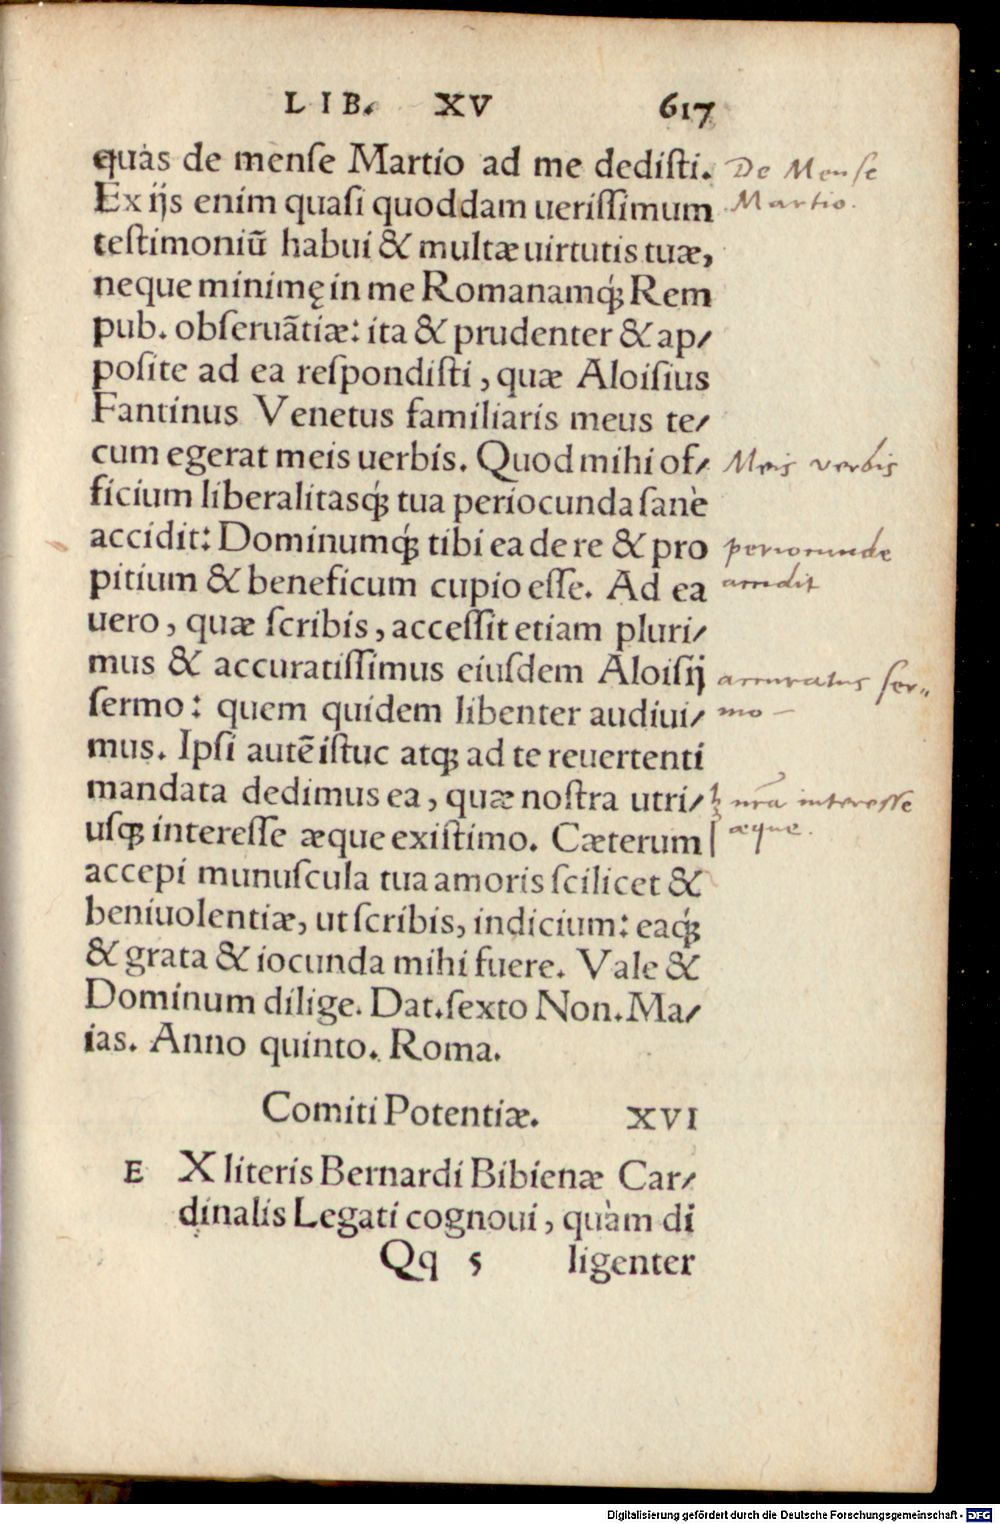 LIB. XV 617
quàs de mense Martio ad me dedisti.
Ex ijs enim quasi quoddam uerissimum
testimoniū habui & multæ uirtutis tuæ,
neque minimę in me Romanamq́; Rem
pub. obseruātiæ: ita & prudenter & ap/
posite ad ea respondisti, quæ Aloisius
Fantinus Venetus familiaris meus te/
cum egerat meis uerbis. Quod mihi of/
ficium liberalitasq́; tua periocunda sanè
accidit: Dominumq́; tibi ea de re & pro
pitium & beneficum cupio esse. Ad ea
uero, quæ scribis, accessit etiam pluri/
mus & accuratissimus eiusdem Aloisij
sermo: quem quidem libenter audiui/
mus. Ipsi autē istuc atq; ad te reuertenti
mandata dedimus ea, quæ nostra utri/
usq; interesse æque existimo. Cæterum
accepi munuscula tua amoris scilicet &
beniuolentiæ, ut scribis, indicium: eaq́;
& grata & iocunda mihi fuere. Vale &
Dominum dilige. Dat. sexto Non. Ma/
ias. Anno quinto. Roma.
Comiti Potentiæ. XVI
E X literis Bernardi Bibienæ Car/
dinalis Legati cognoui, quàm di
Qq 5 ligenter
De Mense
Martio.
Meis verbis
periocunde
accidit
accuratus ser„
mo –
nr̄a interesse
æque.
Digitalisierung gefördert durch die Deutsche Forschungsgemeinschaft - DFG